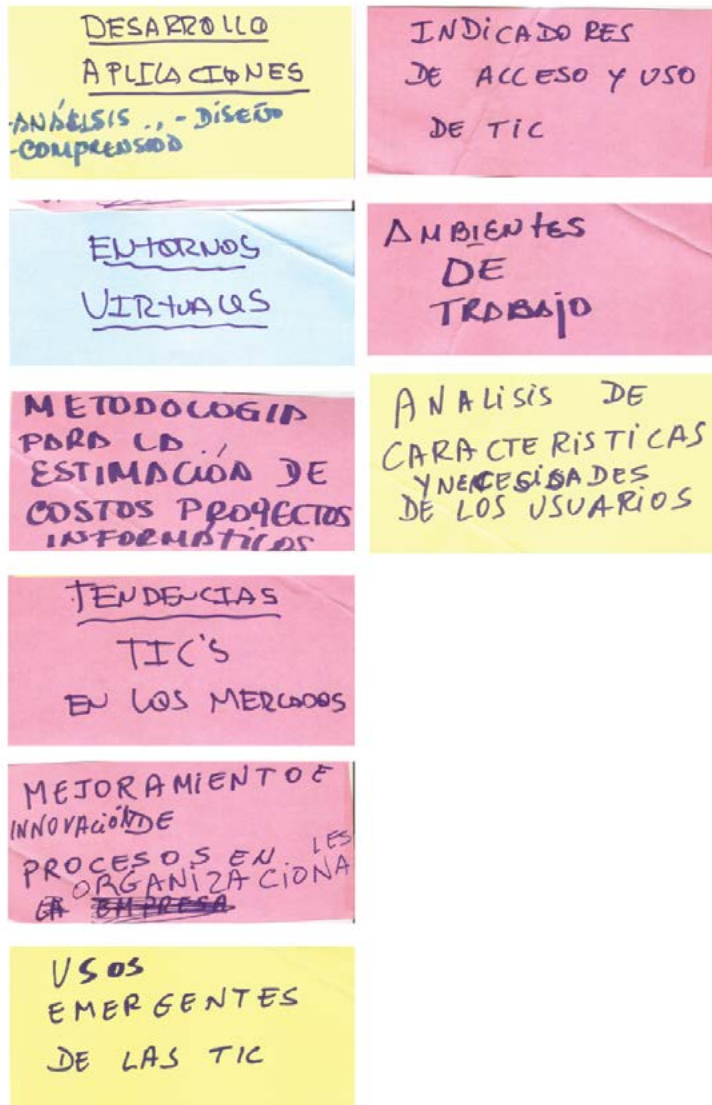 DESARROLLO
APLICACIONES
-ANÁLISIS .,- DISEÑO
-COMPRENSIÓN
ENTORNOS
VIRTUALES
METODOLOGIA
PARA LA
ESTIMACIÓN DE
COSTOS PROYECTOS
INFORMÁTICOS
TENDENCIAS
TIC'S
EN LOS MERCADOS
MEJORAMIENTO E
INNOVACIÓN DE
PROCESOS EN
ORGANIZACIONALES
LA EMPRESA
USOS
EMERGENTES
DE LAS TIC
INDICADORES
DE ACCESO Y USO
DE TIC
AMBIENTES
DE
TRABAJO
ANALISIS DE
CARACTERISTICAS
Y NECESIDADES
DE LOS USUARIOS